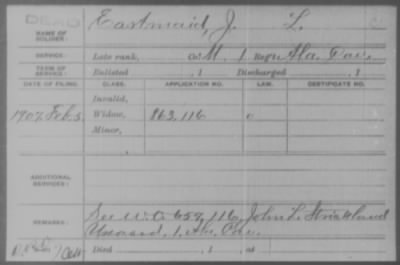 DEAD
NAME OF SOLDIER: Eastmaid, J. L.
SERVICE: Late rank, Co. M, 1 Reg't Ala. Cav.
TERM OF SERVICE: Enlisted , 1 Discharged , 1
DATE OF FILING. CLASS. APPLICATION NO. LAW. CERTIFICATE NO.
Invalid,
1907 Feb. 5 Widow, 862,116
Minor,
ADDITIONAL SERVICES:
REMARKS: See W.O. 658,116, John L. Strickland
1, Ala. Cav.
Died , 1 , at